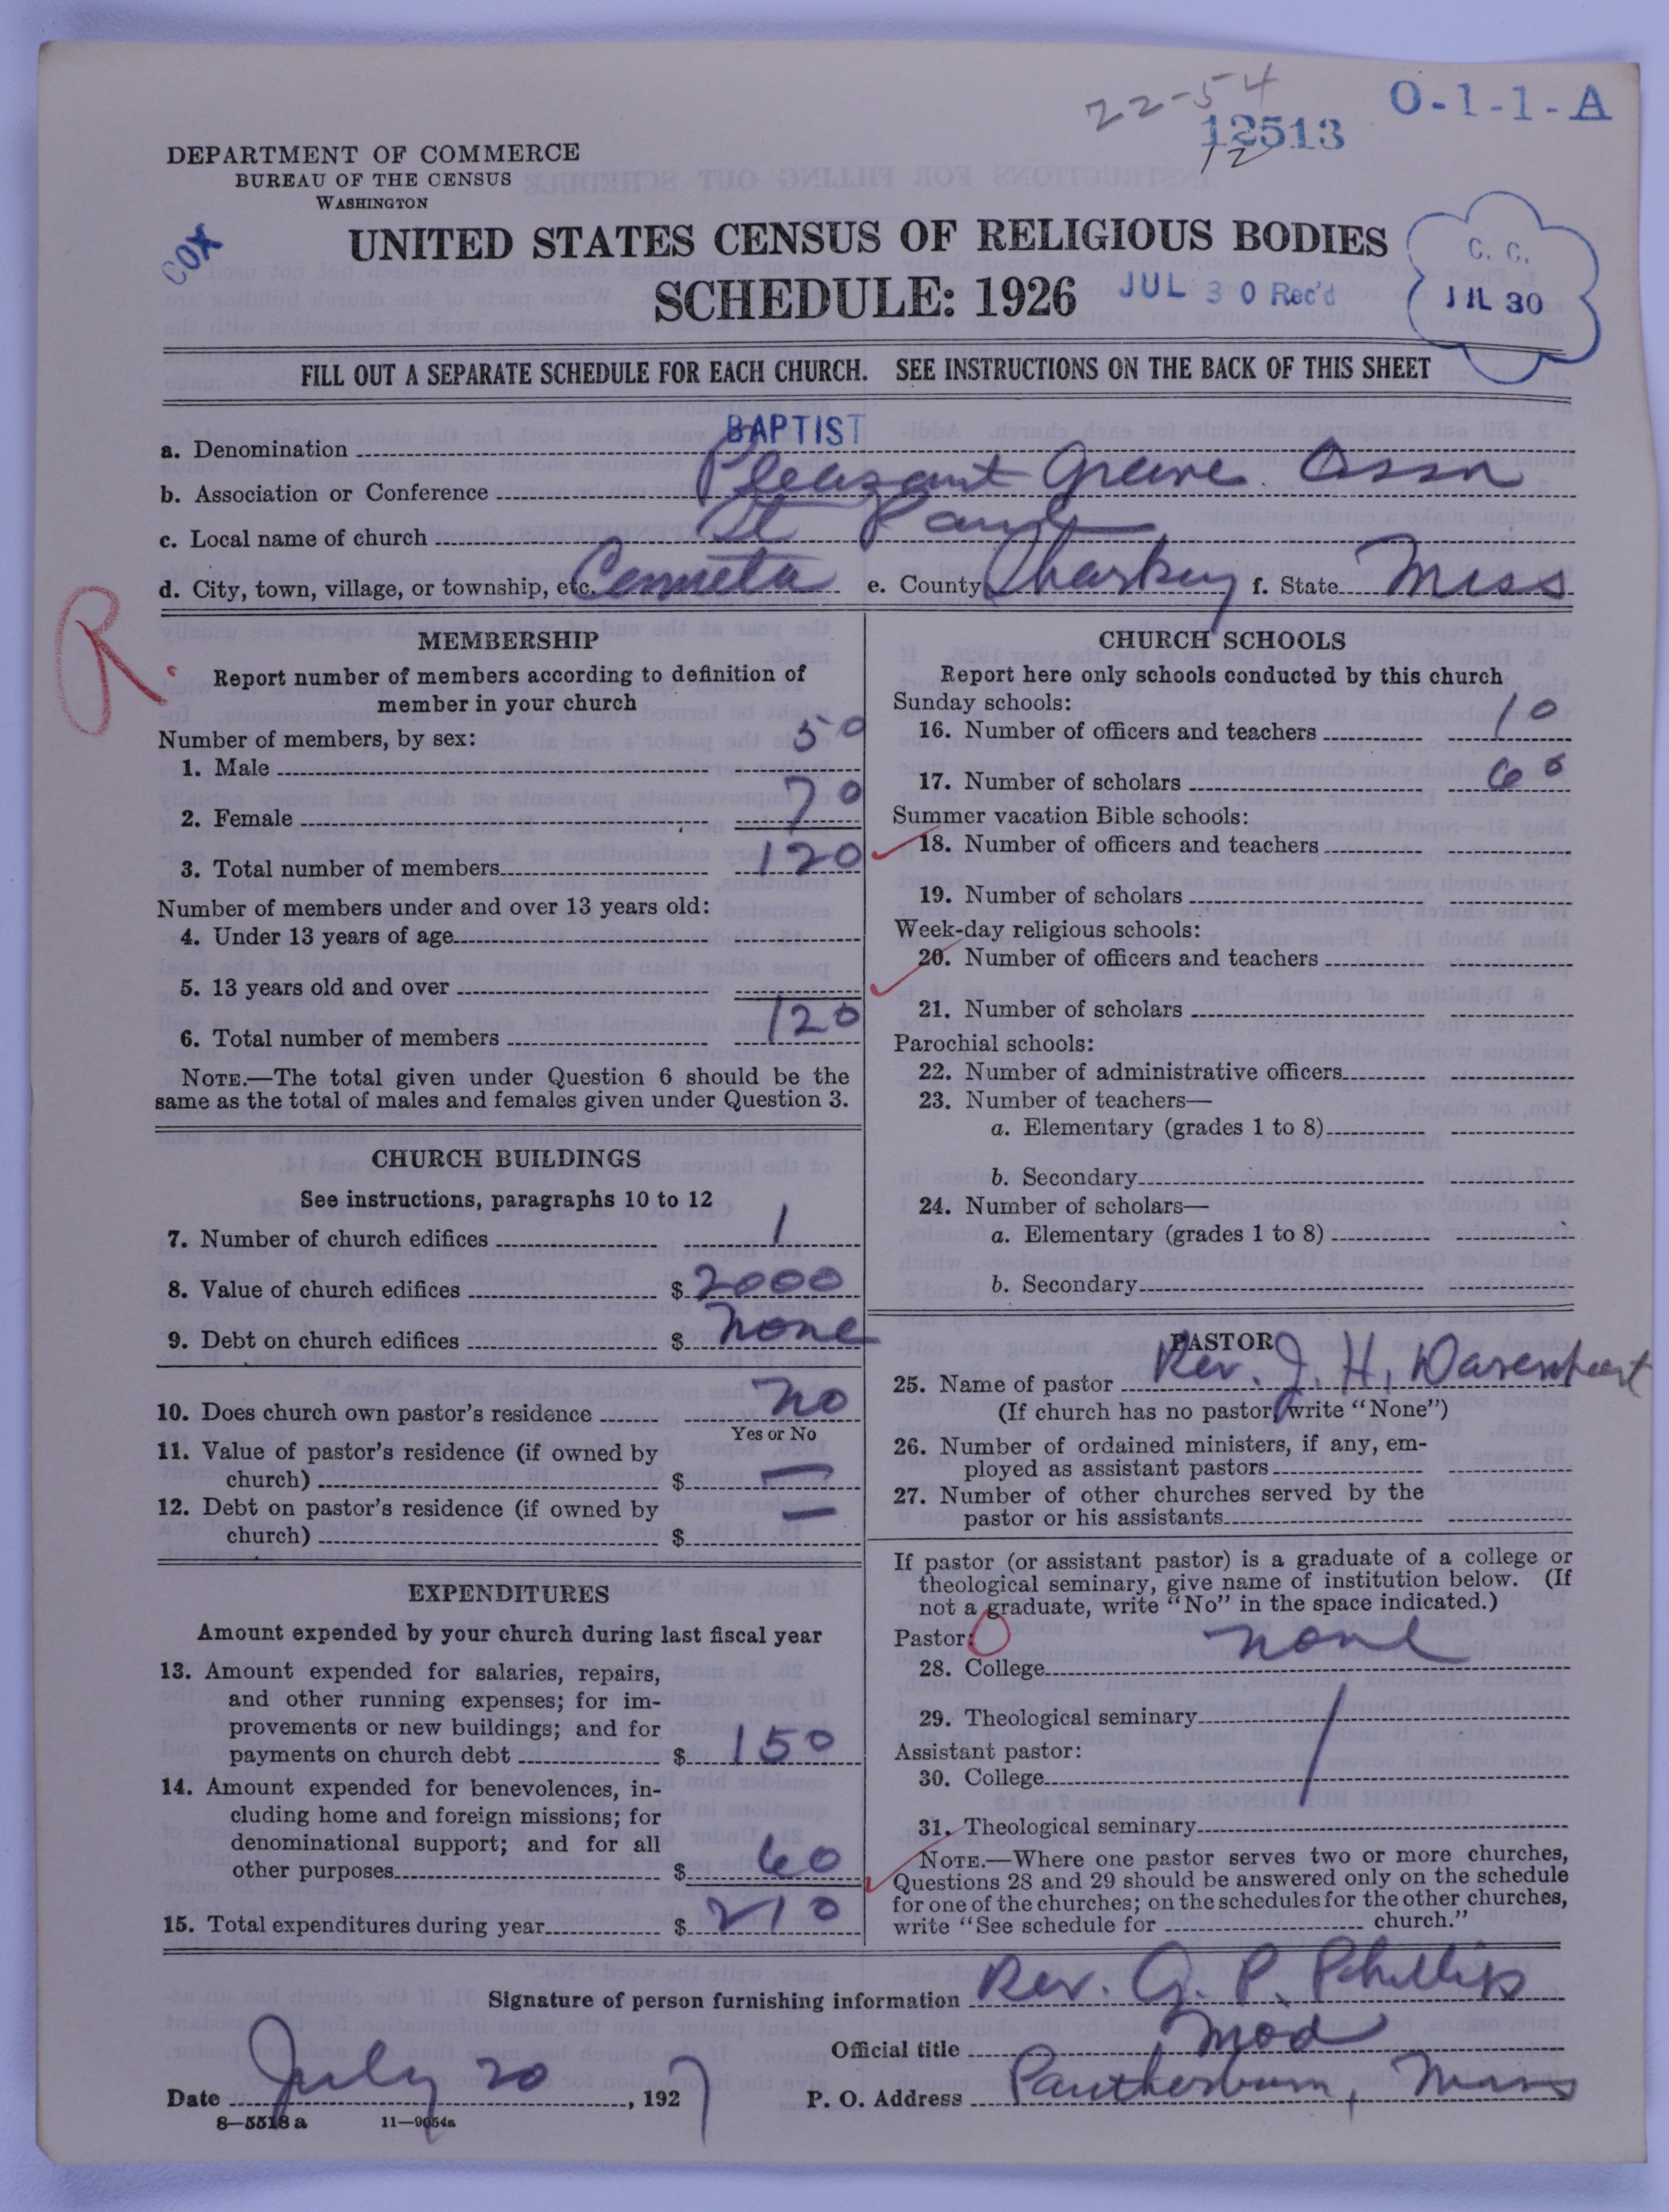 22-54
O-1-1-A
12513
12
DEPARTMENT OF COMMERCE
BUREAU OF THE CENSUS
WASHINGTON
COX
UNITED STATES CENSUS OF RELIGIOUS BODIES
SCHEDULE: 1926
JUL 30 Rec'd
C. C.
JUL 30
FILL OUT A SEPARATE SCHEDULE FOR EACH CHURCH. SEE INSTRUCTIONS ON THE BACK OF THIS SHEET
a. Denomination BAPTIST
b. Association or Conference Pleasant Greive Assn
c. Local name of church St Paul
d. City, town, village, or township, etc. Cenneta e. County Sharkey f. State Miss
R.
MEMBERSHIP
Report number of members according to definition of
member in your church
Number of members, by sex:
1. Male 50
2. Female 70
3. Total number of members 120
Number of members under and over 13 years old:
4. Under 13 years of age
5. 13 years old and over
6. Total number of members 120
NOTE.—The total given under Question 6 should be the
same as the total of males and females given under Question 3.
CHURCH BUILDINGS
See instructions, paragraphs 10 to 12
7. Number of church edifices 1
8. Value of church edifices $ 2000
9. Debt on church edifices $ none
10. Does church own pastor's residence no
Yes or No
11. Value of pastor's residence (if owned by
church) $ —
12. Debt on pastor's residence (if owned by
church) $ —
EXPENDITURES
Amount expended by your church during last fiscal year
13. Amount expended for salaries, repairs,
and other running expenses; for im-
provements or new buildings; and for
payments on church debt $ 150
14. Amount expended for benevolences, in-
cluding home and foreign missions; for
denominational support; and for all
other purposes $ 60
15. Total expenditures during year $ 210
CHURCH SCHOOLS
Report here only schools conducted by this church
Sunday schools:
16. Number of officers and teachers 10
17. Number of scholars 60
Summer vacation Bible schools:
18. Number of officers and teachers
19. Number of scholars
Week-day religious schools:
20. Number of officers and teachers
21. Number of scholars
Parochial schools:
22. Number of administrative officers
23. Number of teachers—
a. Elementary (grades 1 to 8)
b. Secondary
24. Number of scholars—
a. Elementary (grades 1 to 8)
b. Secondary
PASTOR
25. Name of pastor Rev. J. H. 
(If church has no pastor, write "None")
26. Number of ordained ministers, if any, em-
ployed as assistant pastors
27. Number of other churches served by the
pastor or his assistants
If pastor (or assistant pastor) is a graduate of a college or
theological seminary, give name of institution below. (If
not a graduate, write "No" in the space indicated.)
Pastor:
28. College none
29. Theological seminary
Assistant pastor:
30. College
31. Theological seminary
NOTE.—Where one pastor serves two or more churches,
Questions 28 and 29 should be answered only on the schedule
for one of the churches; on the schedules for the other churches,
write "See schedule for church."
Signature of person furnishing information Rev. G. P. Phillips
Official title Mod
Date July 20, 1927 P. O. Address Pantherburn, Miss
8—5518 a 11—9054a